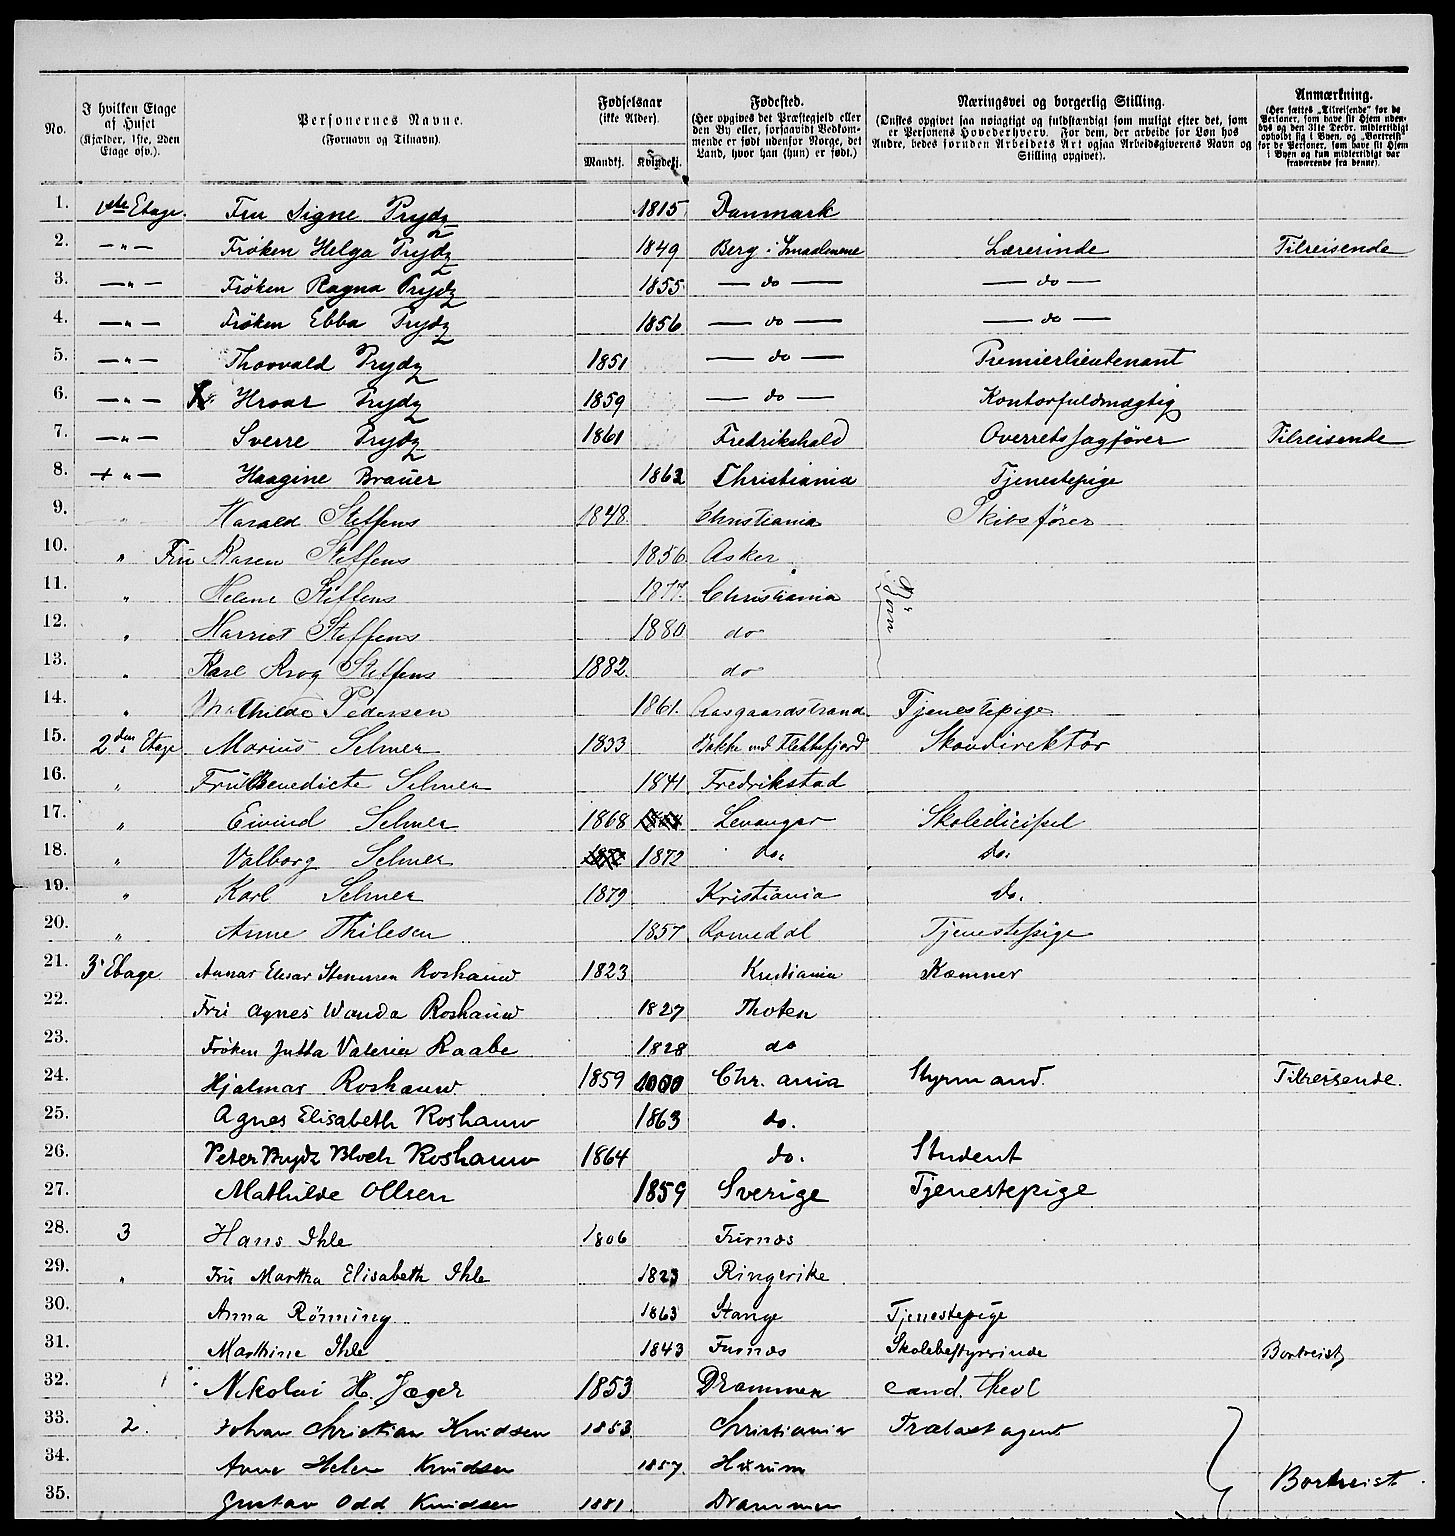 No.
I hvilken Etage af Huset (Kjælder, 1ste, 2den Etage osv.).
Personernes Navne. (Fornavn og Tilnavn).
Fødselsaar (ikke Alder). Mandkj. Kvindekj.
Fødested. (Her opgives det Præstegjeld eller den By eller, forsaavidt Vedkommende er født udenfor Norge, det Land, hvor han (hun) er født.)
Næringsvei og borgerlig Stilling. (Ønskes opgivet saa nøiagtigt og fuldstændigt som muligt efter det, som er Personens Hovederhverv. For dem, der arbeide for Løn hos Andre, bedes foruden Arbeidets Art ogsaa Arbeidsgiverens Navn og Stilling opgivet).
Anmærkning. (Her sættes „Tilreisende" for de Personer, som have sit Hjem udenbys og den 31te Decbr. midlertidigt opholdt sig i Byen, og „Bortreist" for de Personer, som have sit Hjem i Byen og kun midlertidigt var fraværende fra denne).
1. 1ste Etage. Fru Signe Prydz 1815 Danmark
2. — " — Frøken Helga Prydz 1849 Berg i Smaalenene Lærerinde Tilreisende
3. — " — Frøken Ragna Prydz 1855 — do — — do —
4. — " — Frøken Ebba Prydz 1856 — do — — do —
5. — " — Thorvald Prydz 1851 — do — Premierlieutenant
6. — " — Hroar Prydz 1859 — do — Kontorfuldmægtig
7. — " — Sverre Prydz 1861 Fredrikshald Overretssagfører Tilreisende
8. + " — Haagine Brauer 1862 Christiania Tjenestepige
9. " Harald Steffens 1848. Christiania Skibsfører
10. " Fru Karen Steffens 1856 Asker
11. " Helene Steffens 1877. Christiania
12. " Harriet Steffens 1880 do
13. " Karl Krog Steffens 1882. do
14. " Mathilde Pedersen 1861. Aasgaardstrand Tjenestepige
15. 2den Etage Marius Selmer 1833 Bakke ved Flekkefjord Skovdirektør
16. " Fru Benedicte Selmer 1841 Fredrikstad
17. " Eivind Selmer 1868 Levanger Skoledicipel
18. " Valborg Selmer 1872 do. do.
19. " Karl Selmer 1879 Kristiania do.
20. " Anne Thilesen 1857 Romedal Tjenestepige
21. 3' Etage Roshauw 1823 Kristiania Kæmner
22. Fru Agnes Wanda Roshauw 1827 Thoten
23. Frøken Jutta Valeria Raabe 1828 do
24. Hjalmar Roshauw 1859 Chr. ania Styrmand. Tilreisende.
25. Agnes Elisabeth Roshauw 1863 do.
26. Peter Prydz Bloch Roshauw 1864 do. Student
27. Mathilde Ollsen 1859 Sverige Tjenestepige
28. 3 Hans Ihle 1806 Furnæs
29. " Fru Martha Elisabeth Ihle 1823 Ringerike
30. Anna Rönning 1863 Stange Tjenestepige
31. Marthine Ihle 1843 Furnæs Skolebestyrerinde Bortreist
32. Nikolai H. Jæger 1853 Drammen cand. theol
33. 2. Johan Christian Knudsen 1853 Christiania Trælastagent
34. Anne Helene Knudsen 1857. Hurum Bortreist
35. Gustav Odd Knudsen 1881. Drammen